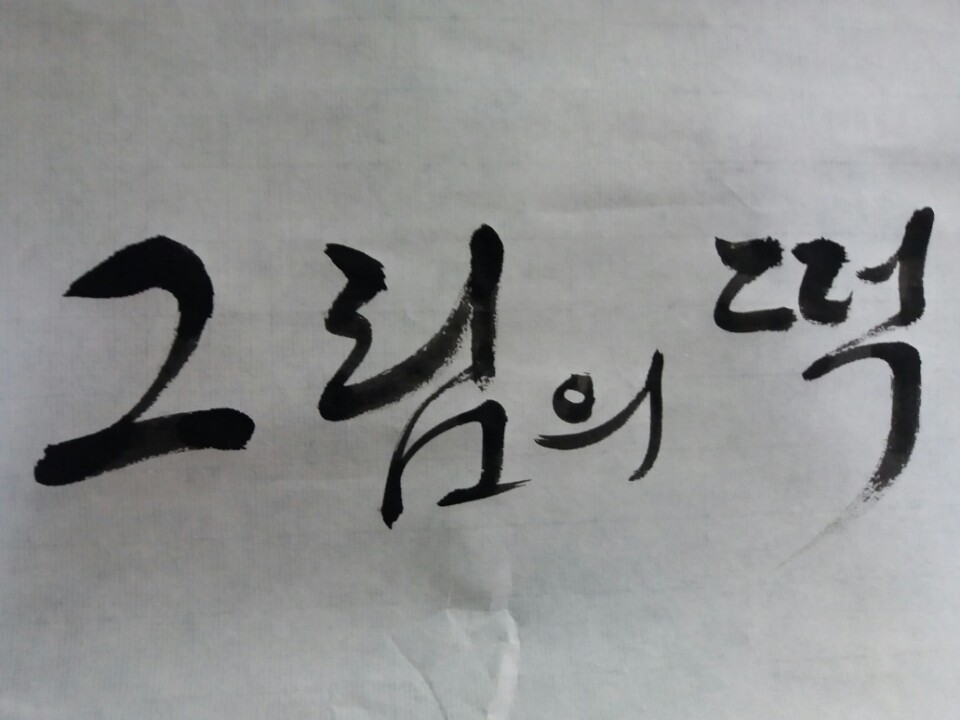 그림의 떡